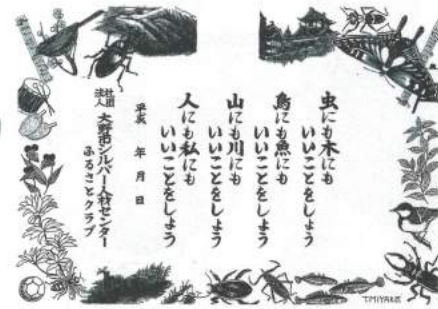 虫にも木にも
いいことをしよう
鳥にも魚にも
いいことをしよう
山にも川にも
いいことをしよう
人にも私にも
いいことをしよう
平成　年　月　日
社団法人 大野市シルバー人材センター
ふるさとクラブ
T.MIYAKE